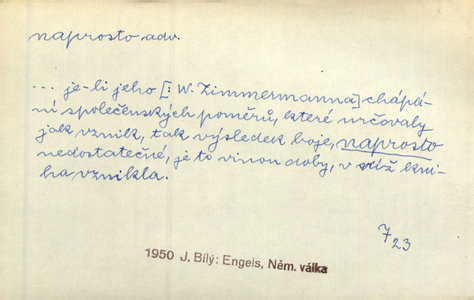 naprosto adv.
... je-li jeho [: W. Zimmermanna] chápá-
ní společenských poměrů, které určovaly
jak vznik, tak výsledek boje, naprosto
nedostatečné, je to vinou doby, v níž kni-
ha vznikla.
7
23
1950 J. Bílý: Engels, Něm. válka